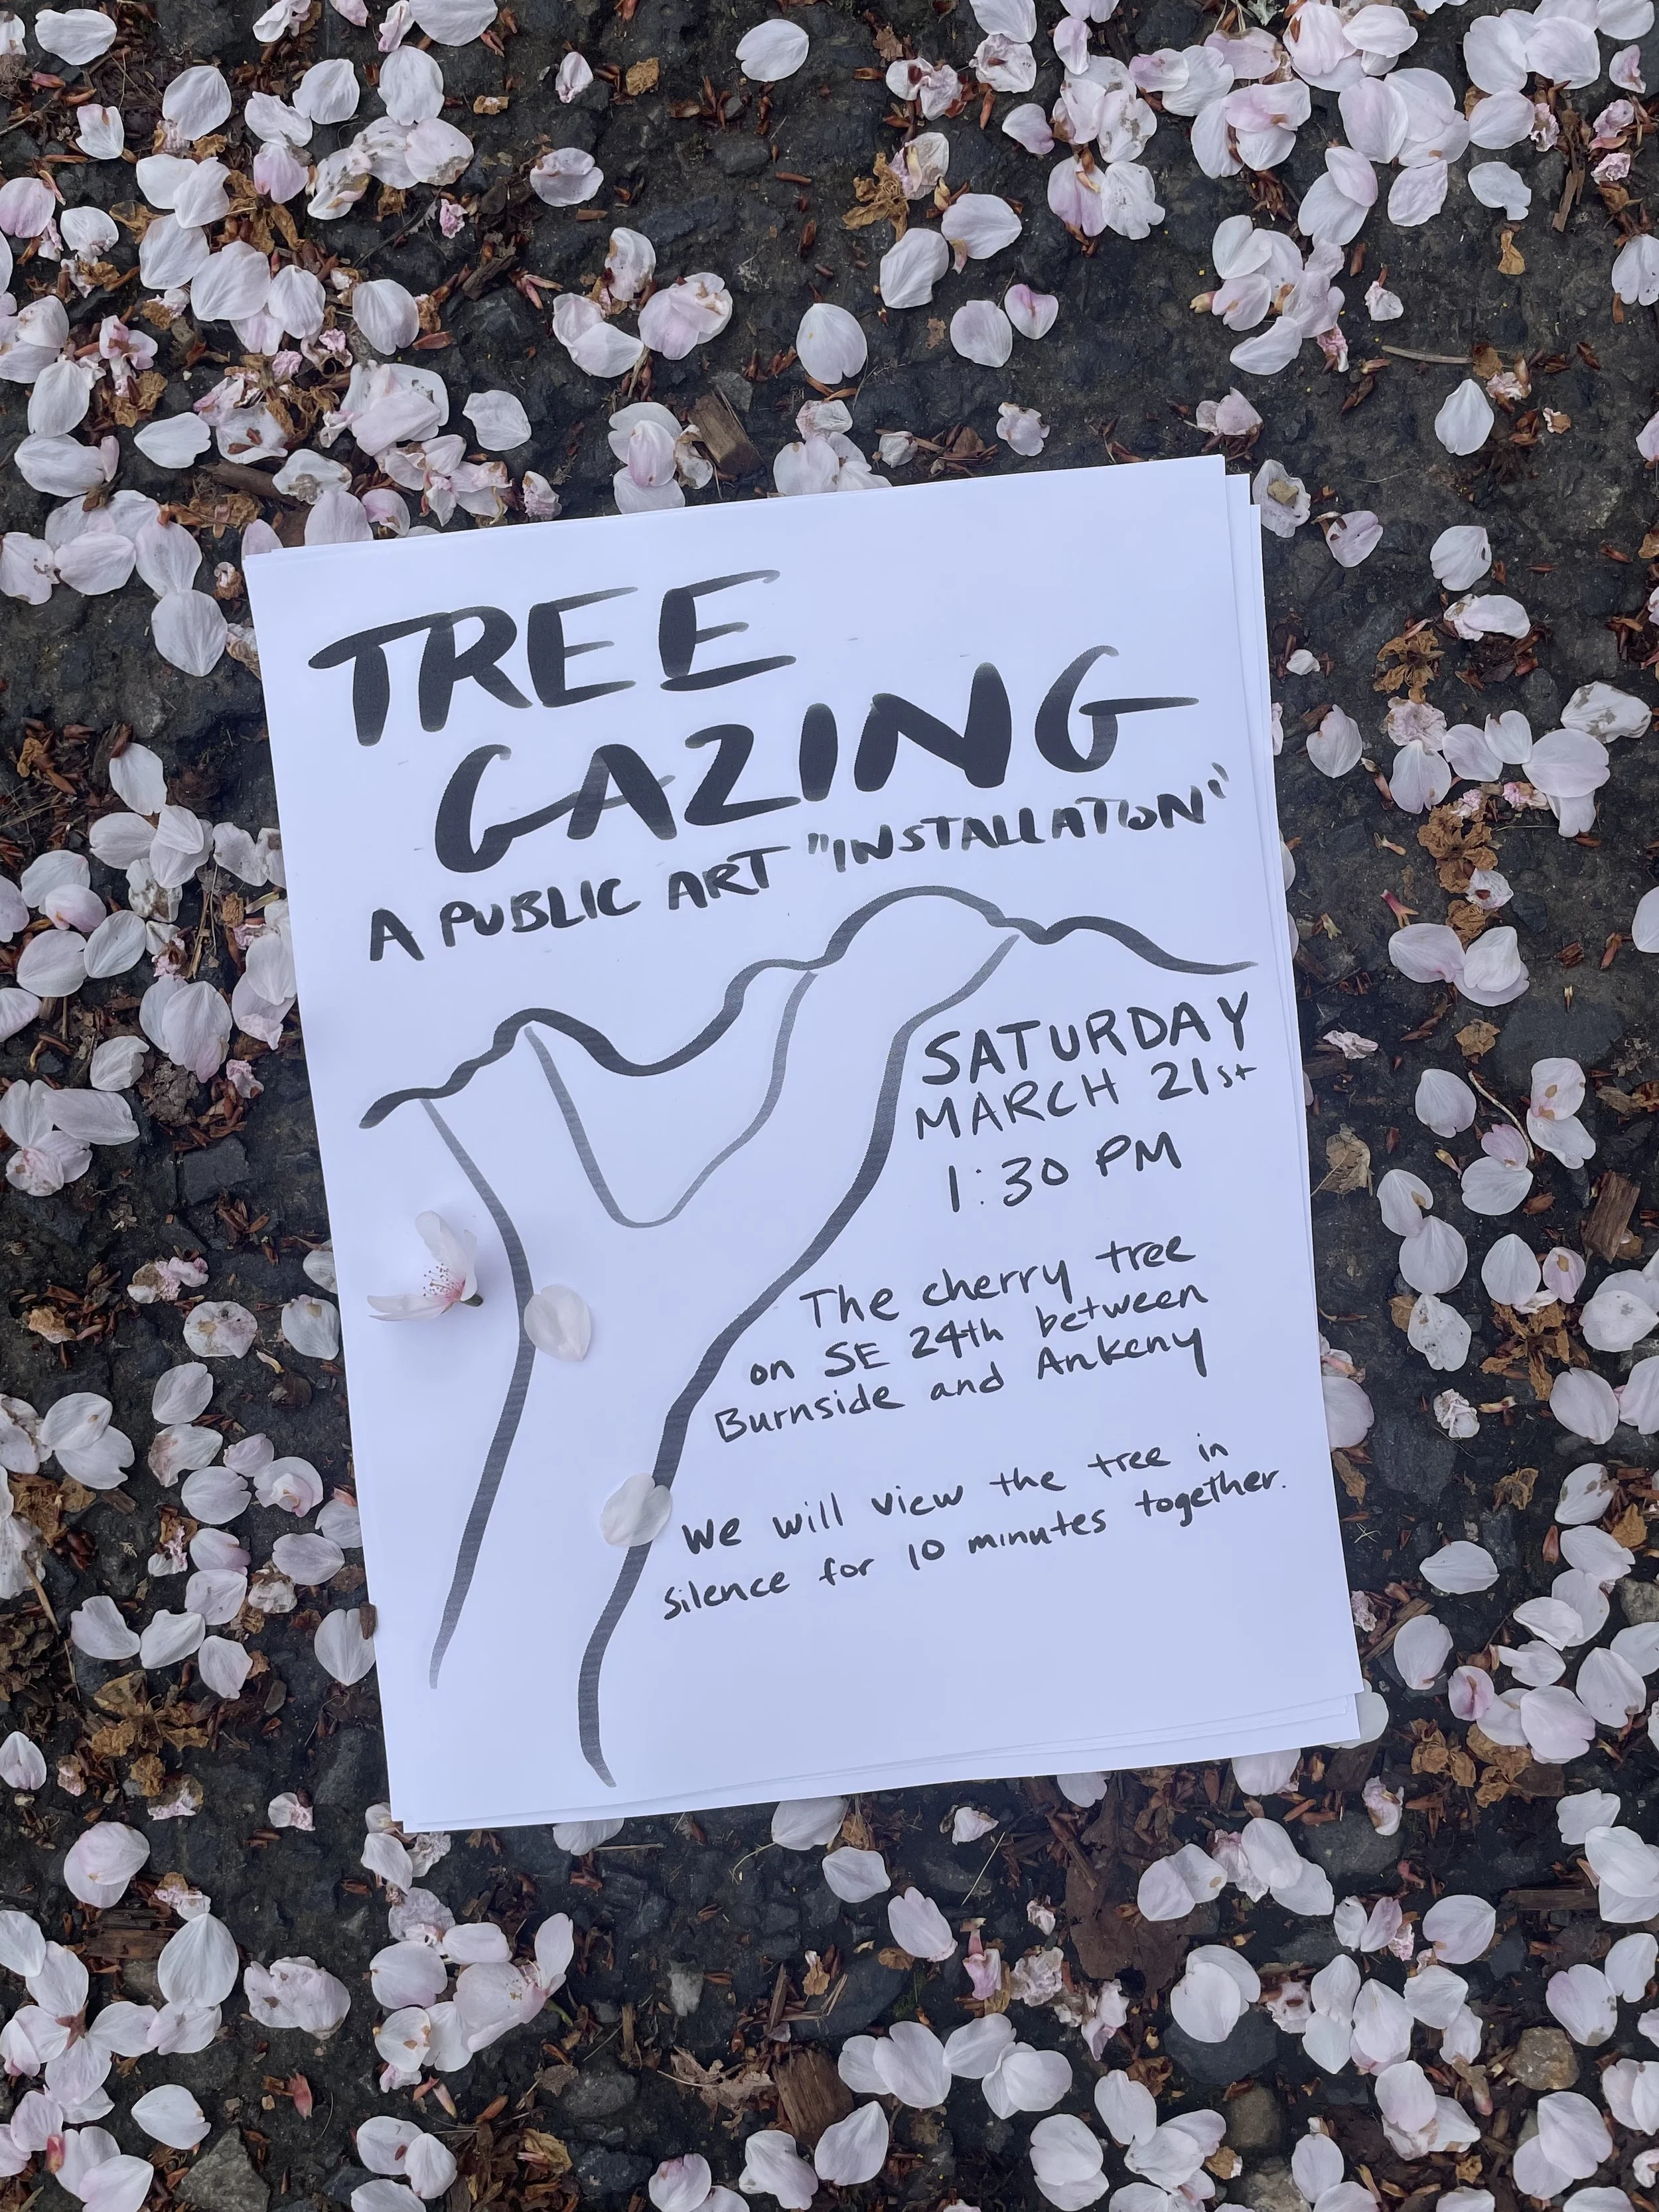 TREE
GAZING
A PUBLIC ART "INSTALLATION"
SATURDAY
MARCH 21st
1:30 PM
The cherry tree
on SE 24th between
Burnside and Ankeny
We will view the tree in
silence for 10 minutes together.